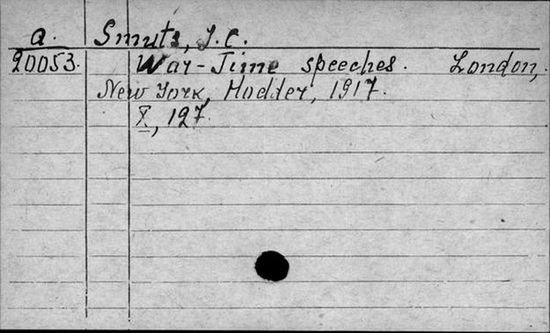 a. Smuts, J.C.
20053. War-Time speeches. London,
New York, Hodder, 1917.
X, 127.